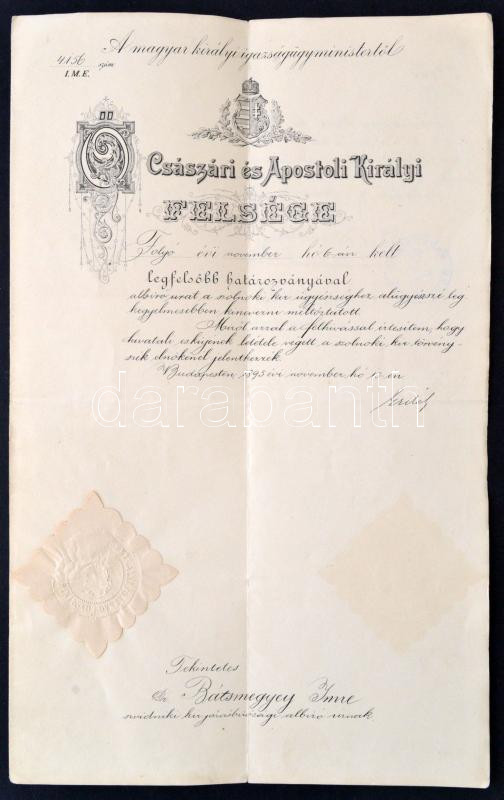 A magyar királyi igazságügyministertől
4156 szám
I.M.E.
Ő Császári és Apostoli Királyi
FELSÉGE
Folyó évi november hó 6-án kelt
legfelsőbb határozványával
albiró urat a szolnoki kir ügyészséghez alügyészszé leg
kegyelmesebben kinevezni méltóztatott
Miről azzal a felhivással értesitem, hogy
hivatali esküjének letétele végett a szolnoki kir törvény-
szék elnökénél jelentkezzék
Budapesten, 1895 évi november hó 13 én
darabanth
Tekintetes
Dr Bátsmegyey Imre
svidniki kir járásbirósági albiró urnak